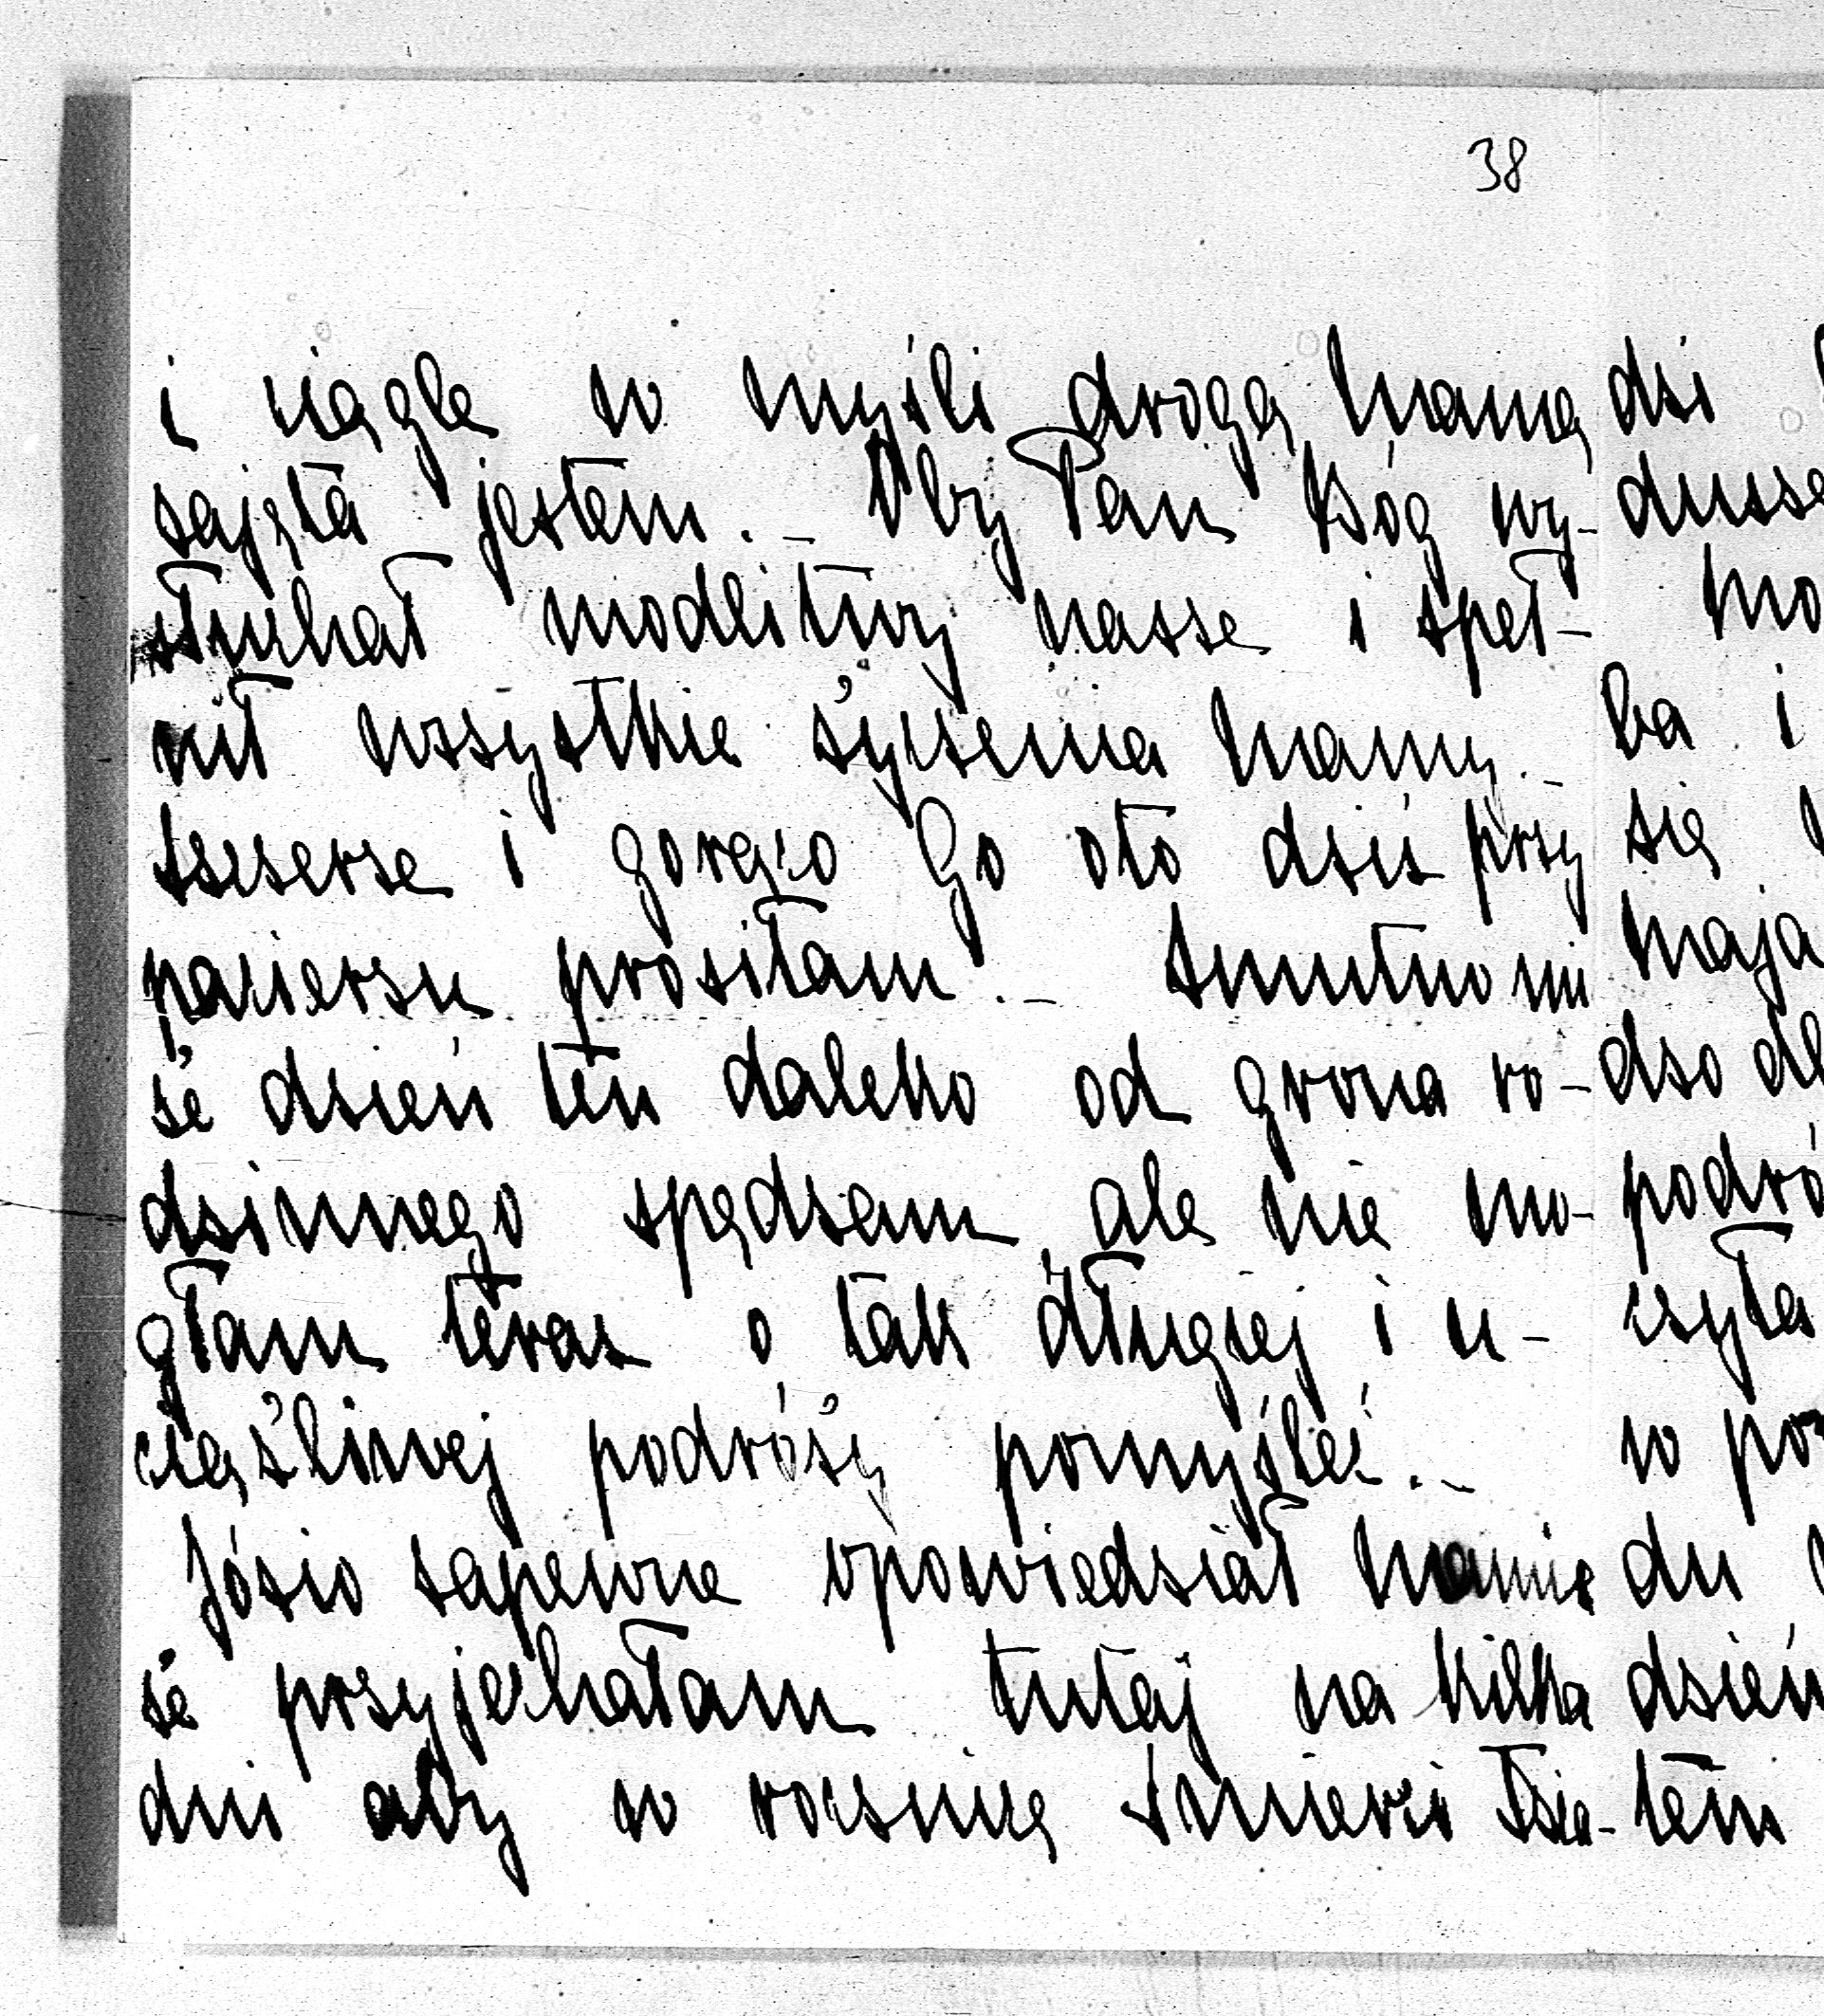 38
i ciągle w myśli drogą Mamą
zajęta jestem. - Oby Pan Bóg wy-
słuchał modlitwy nasze i speł-
nił wszystkie życzenia Mamy. -
Szczerze i gorąco Go oto dziś przy
pacierzu prosiłam. - Smutno mi
że dzień ten daleko od grona ro-
dzinnego spędzam, ale nie mo-
głam teraz o tak długiej i u-
ciążliwej podróży pomyśleć. -
Józio zapewne opowiedział Mamie
że przyjechałam tutaj na kilka
dni aby w rocznicę śmierci
dzi
dusze
Mo
ba i
się
maja
dzo dl
podró
czyta
w po
du
dzień
tém